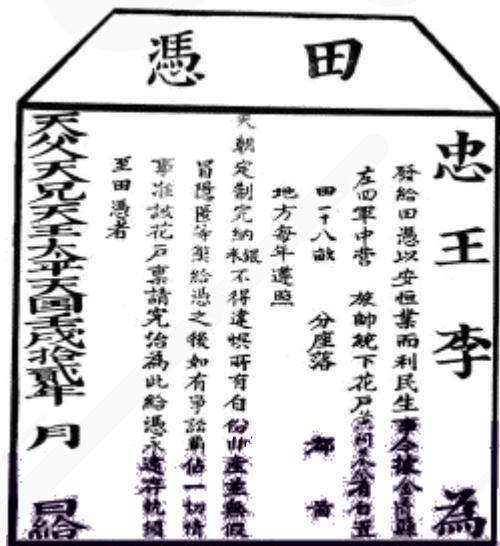 田憑
忠王李為
發給田憑以安恒業而利民生事今據金匱縣
左四軍中營 旅帥統下花戶黃 有自置
田一十八畝 分座落 都 啚
地方每年遵照
天朝定制完納銀米不得違悞所有自份田產並無假
冒隱匿等獘給憑之後如有爭訟霸佔一切情
事准該花戶稟請究治為此給憑永遠存執須
至田憑者
天父天兄天王太平天囯壬戌拾貳年 月 日給